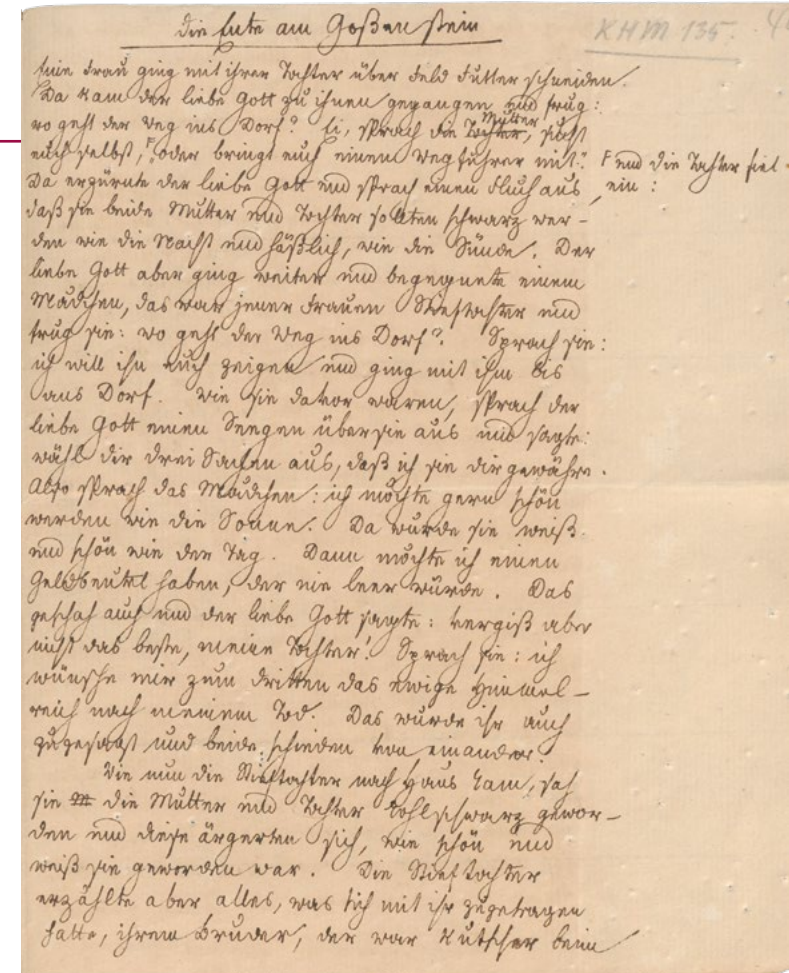 Die Ente am Goßenstein
KHM 135.
Eine Frau ging mit ihrer Tochter über Feld Futter schneiden.
Da kam der liebe Gott zu ihnen gegangen und frug:
wo geht der Weg ins Dorf? Ei, sprach die Tochter, Mutter, sucht
euch selbst, F oder bringt euch einem Wegführer mit?
F und die Tochter fiel
ein:
Da erzürnte der liebe Gott und sprach einen Fluch aus
daß sie beide Mutter und Tochter sollten schwarz wer-
den wie die Nacht und häßlich, wie die Sünde. Der
liebe Gott aber ging weiter und begegnete einem
Mädchen, das war jener Frauen Stieftochter und
frug sie: wo geht der Weg ins Dorf? Sprach sie:
ich will ihn euch zeigen und ging mit ihm bis
ans Dorf. Wie sie davor waren, sprach der
liebe Gott einen Seegen über sie aus und sagte:
wähl dir drei Sachen aus, daß ich sie dir gewähre.
Also sprach das Mädchen: ich möchte gern schön
werden wie die Sonne. Da wurde sie weiß
und schön wie der Tag. Dann möchte ich einen
Geldbeutel haben, der nie leer würde. Das
geschah auch und der liebe Gott sagte: vergiß aber
nicht das beste, meine Tochter! Sprach sie: ich
wünsche mir zum dritten das ewige Himmel-
reich nach meinem Tod. Das wurde ihr auch
zugesagt und beide schieden von einander.
Wie nun die Stieftochter nach Haus kam, sah
sie die Mutter und Tochter kohlschwarz gewor-
den und diese ärgerten sich, wie schön und
weiß sie geworden war. Die Stieftochter
erzählte aber alles, was sich mit ihr zugetragen
hatte, ihrem Bruder, der war Kutscher beim